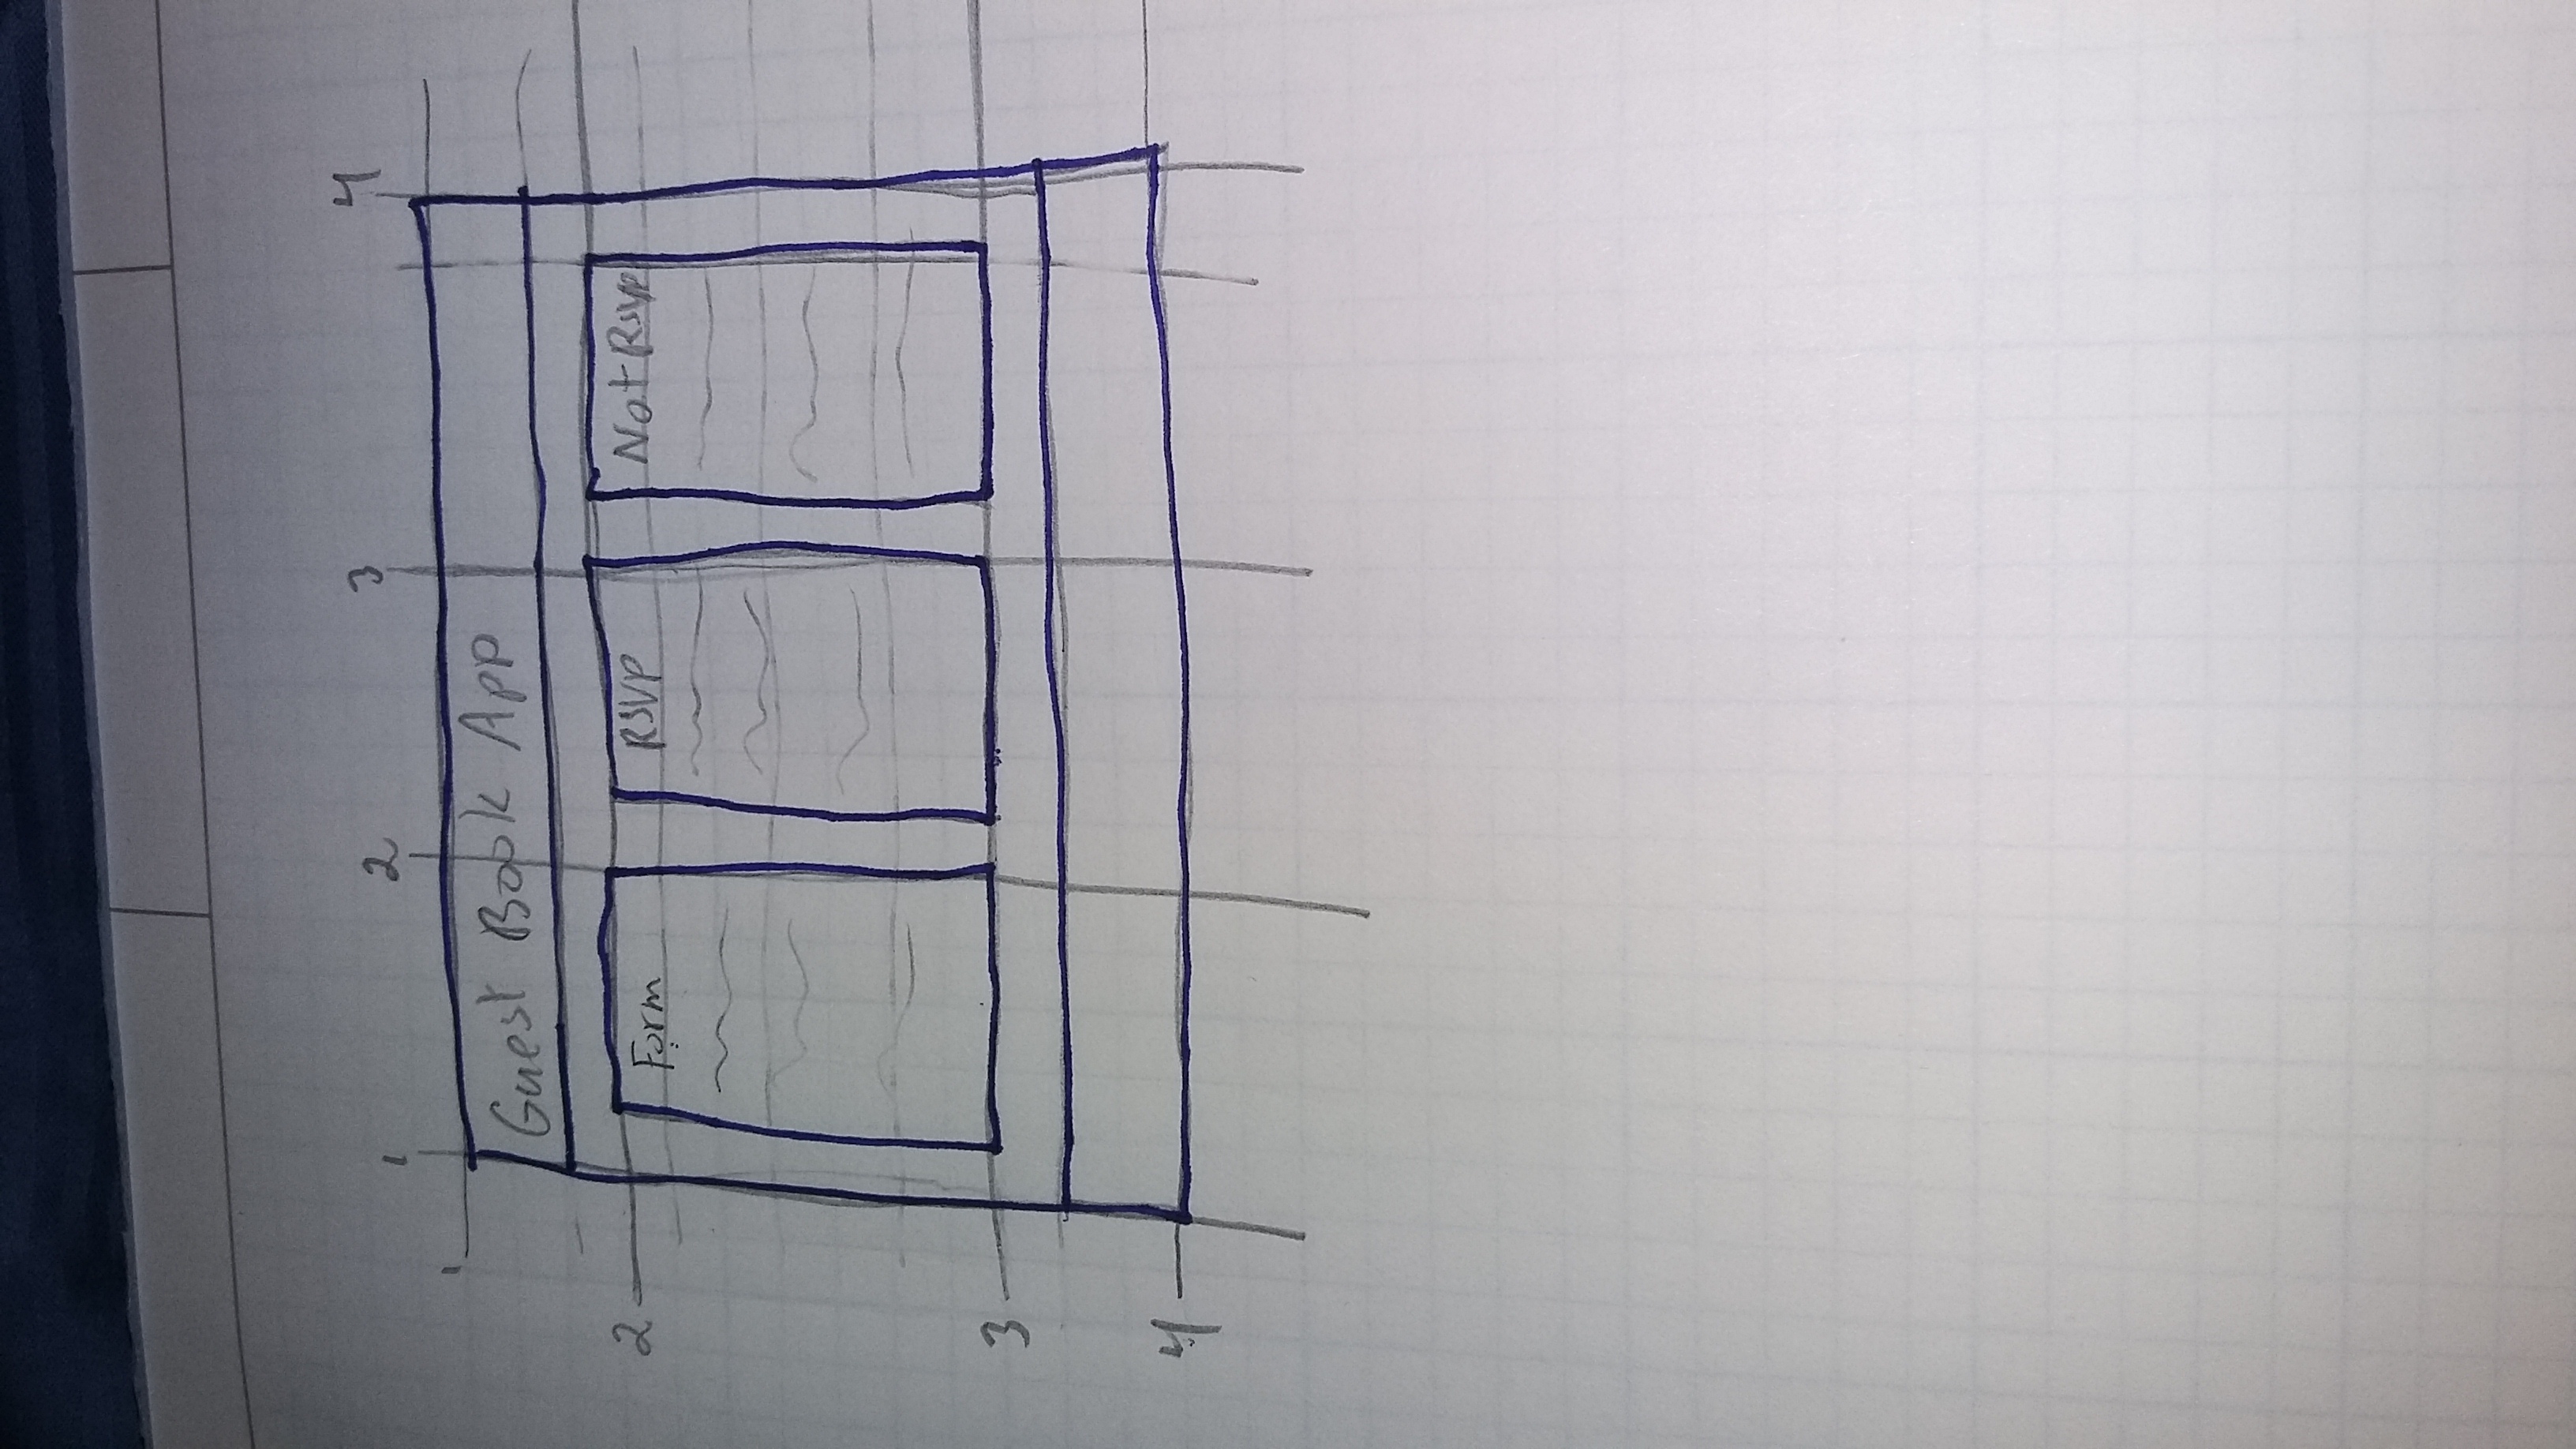 1 2 3 4
1
Guest Book App
2
Form RSVP Not Rsvp
3
4